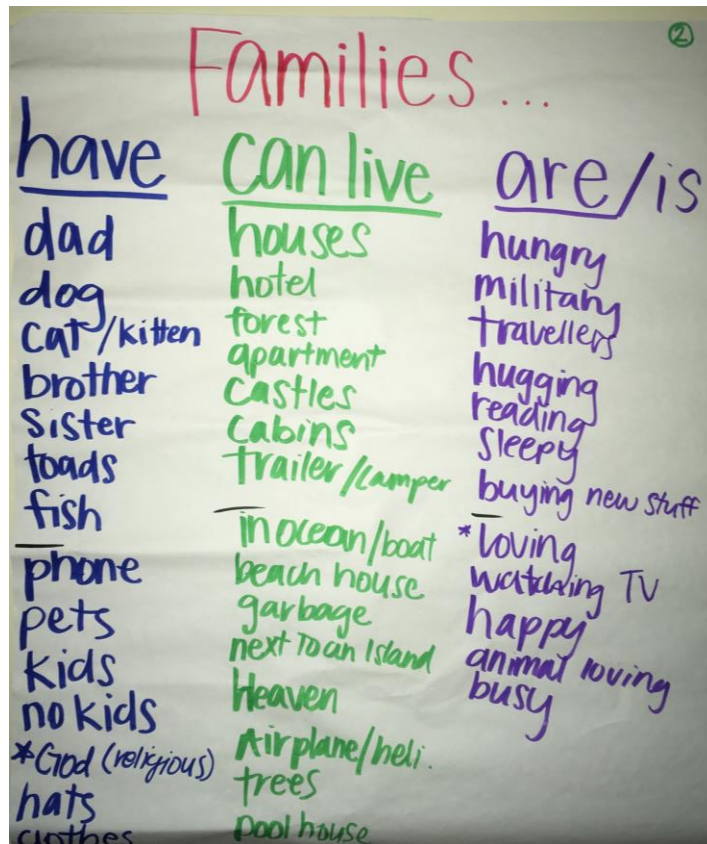 ②
Families...
have
dad
dog
cat/kitten
brother
sister
toads
fish
phone
pets
kids
no kids
*God (religious)
hats
clothes
can live
houses
hotel
forest
apartment
castles
cabins
trailer/camper
in ocean/boat
beach house
garbage
next to an Island
Heaven
Airplane/heli.
trees
pool house
are/is
hungry
military
travellers
hugging
reading
sleepy
buying new stuff
*loving
watching TV
happy
animal loving
busy